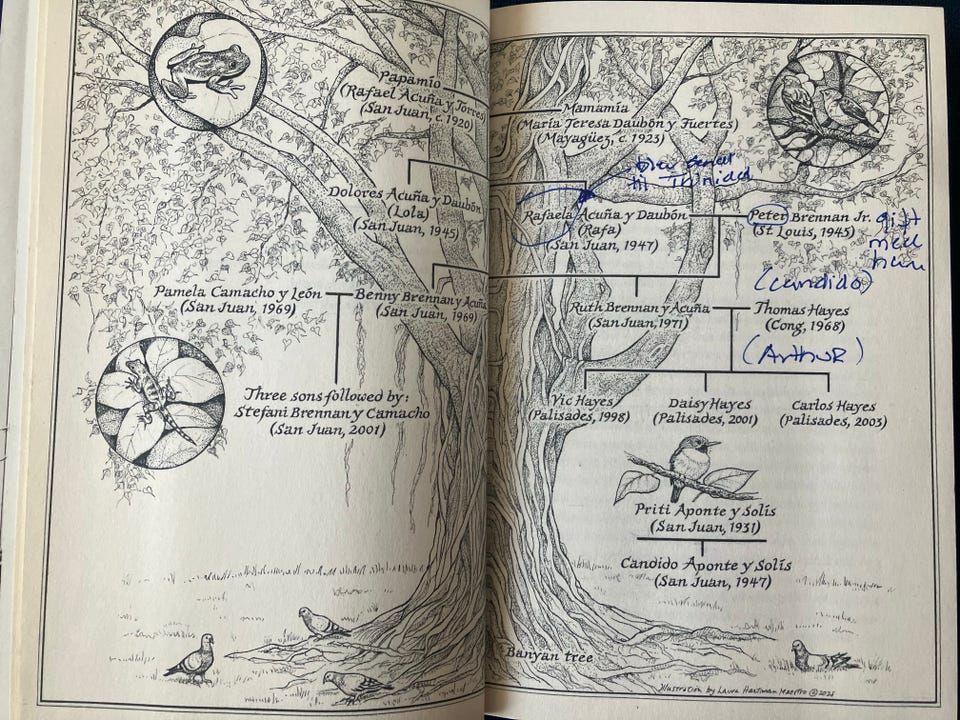 Papamío
(Rafael Acuña y Torres)
(San Juan, c. 1920)
Mamamía
(María Teresa Daubón y Fuertes)
(Mayagüez, c. 1923)
Dolores Acuña y Daubón
(Lola)
(San Juan, 1945)
in Trinidad
Rafaela Acuña y Daubón
(Rafa)
(San Juan, 1947)
Peter Brennan Jr.
(St Louis, 1945)
gift
(Candido)
Pamela Camacho y León
(San Juan, 1969)
Benny Brennan y Acuña
(San Juan, 1969)
Ruth Brennan y Acuña
(San Juan, 1971)
Thomas Hayes
(Cong, 1968)
(Arthur)
Three sons followed by:
Stefani Brennan y Camacho
(San Juan, 2001)
Vic Hayes
(Palisades, 1998)
Daisy Hayes
(Palisades, 2001)
Carlos Hayes
(Palisades, 2003)
Priti Aponte y Solís
(San Juan, 1931)
Candido Aponte y Solís
(San Juan, 1947)
Banyan tree
Illustration by Laura Hartman Maestro ©